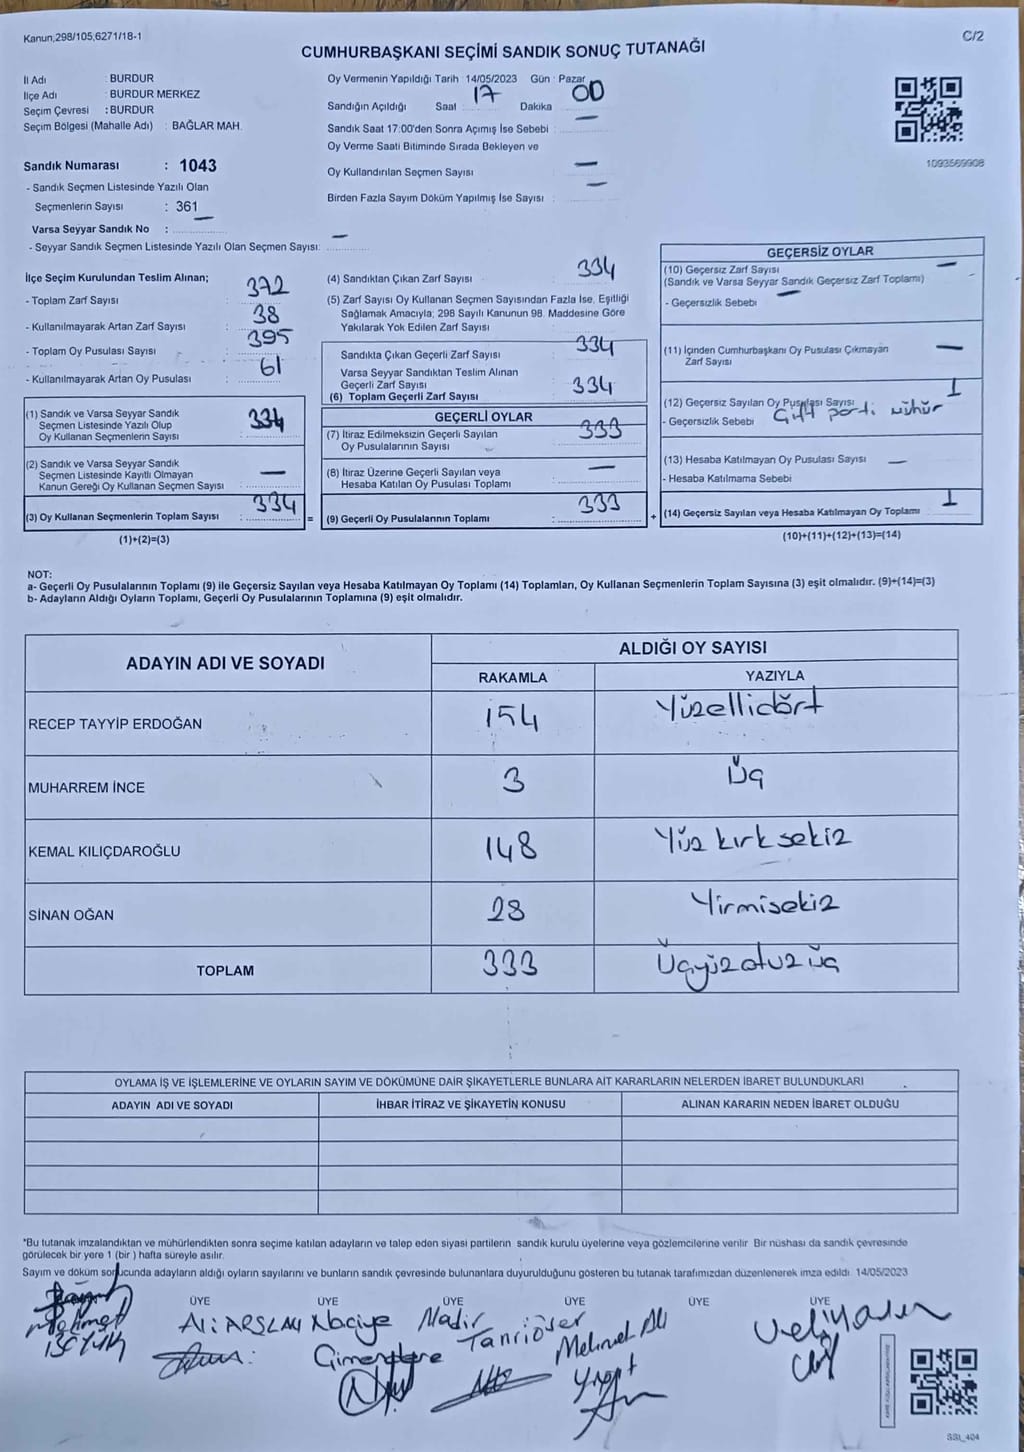 Kanun;298/105,6271/18-1
C/2
CUMHURBAŞKANI SEÇİMİ SANDIK SONUÇ TUTANAĞI
İl Adı : BURDUR
İlçe Adı : BURDUR MERKEZ
Seçim Çevresi : BURDUR
Seçim Bölgesi (Mahalle Adı) : BAĞLAR MAH.
Oy Vermenin Yapıldığı Tarih 14/05/2023 Gün : Pazar
Sandığın Açıldığı Saat 17 Dakika 00
Sandık Saat 17:00'den Sonra Açımış İse Sebebi : —
Oy Verme Saati Bitiminde Sırada Bekleyen ve
Oy Kullandırılan Seçmen Sayısı —
Birden Fazla Sayım Döküm Yapılmış İse Sayısı : —
1093569908
Sandık Numarası : 1043
- Sandık Seçmen Listesinde Yazılı Olan
Seçmenlerin Sayısı : 361
Varsa Seyyar Sandık No : —
- Seyyar Sandık Seçmen Listesinde Yazılı Olan Seçmen Sayısı: —
İlçe Seçim Kurulundan Teslim Alınan;
- Toplam Zarf Sayısı : 372
- Kullanılmayarak Artan Zarf Sayısı : 38
- Toplam Oy Pusulası Sayısı : 395
- Kullanılmayarak Artan Oy Pusulası : 61
(1) Sandık ve Varsa Seyyar Sandık
Seçmen Listesinde Yazılı Olup
Oy Kullanan Seçmenlerin Sayısı : 334
(2) Sandık ve Varsa Seyyar Sandık
Seçmen Listesinde Kayıtlı Olmayan
Kanun Gereği Oy Kullanan Seçmen Sayısı : —
(3) Oy Kullanan Seçmenlerin Toplam Sayısı : 334
(1)+(2)=(3)
(4) Sandıktan Çıkan Zarf Sayısı 334
(5) Zarf Sayısı Oy Kullanan Seçmen Sayısından Fazla İse, Eşitliği
Sağlamak Amacıyla; 298 Sayılı Kanunun 98. Maddesine Göre
Yakılarak Yok Edilen Zarf Sayısı
Sandıkta Çıkan Geçerli Zarf Sayısı 334
Varsa Seyyar Sandıktan Teslim Alınan
Geçerli Zarf Sayısı
(6) Toplam Geçerli Zarf Sayısı 334
GEÇERLİ OYLAR
(7) İtiraz Edilmeksizin Geçerli Sayılan
Oy Pusulalarının Sayısı 333
(8) İtiraz Üzerine Geçerli Sayılan veya
Hesaba Katılan Oy Pusulası Toplamı —
= (9) Geçerli Oy Pusulalarının Toplamı : 333
GEÇERSİZ OYLAR
(10) Geçersiz Zarf Sayısı —
(Sandık ve Varsa Seyyar Sandık Geçersiz Zarf Toplamı)
- Geçersizlik Sebebi —
(11) İçinden Cumhurbaşkanı Oy Pusulası Çıkmayan
Zarf Sayısı —
(12) Geçersiz Sayılan Oy Pusulası Sayısı 1
- Geçersizlik Sebebi Çift parti mühür
(13) Hesaba Katılmayan Oy Pusulası Sayısı —
- Hesaba Katılmama Sebebi
+ (14) Geçersiz Sayılan veya Hesaba Katılmayan Oy Toplamı 1
(10)+(11)+(12)+(13)=(14)
NOT:
a- Geçerli Oy Pusulalarının Toplamı (9) ile Geçersiz Sayılan veya Hesaba Katılmayan Oy Toplamı (14) Toplamları, Oy Kullanan Seçmenlerin Toplam Sayısına (3) eşit olmalıdır. (9)+(14)=(3)
b- Adayların Aldığı Oyların Toplamı, Geçerli Oy Pusulalarının Toplamına (9) eşit olmalıdır.
ADAYIN ADI VE SOYADI ALDIĞI OY SAYISI
RAKAMLA YAZIYLA
RECEP TAYYİP ERDOĞAN 154 Yüzellidört
MUHARREM İNCE 3 Üç
KEMAL KILIÇDAROĞLU 148 Yüz kırk sekiz
SİNAN OĞAN 28 Yirmisekiz
TOPLAM 333 Üçyüzotuzüç
OYLAMA İŞ VE İŞLEMLERİNE VE OYLARIN SAYIM VE DÖKÜMÜNE DAİR ŞİKAYETLERLE BUNLARA AİT KARARLARIN NELERDEN İBARET BULUNDUKLARI
ADAYIN ADI VE SOYADI İHBAR İTİRAZ VE ŞİKAYETİN KONUSU ALINAN KARARIN NEDEN İBARET OLDUĞU
*Bu tutanak imzalandıktan ve mühürlendikten sonra seçime katılan adayların ve talep eden siyasi partilerin sandık kurulu üyelerine veya gözlemcilerine verilir. Bir nüshası da sandık çevresinde
görülecek bir yere 1 (bir ) hafta süreyle asılır.
Sayım ve döküm sonucunda adayların aldığı oyların sayılarını ve bunların sandık çevresinde bulunanlara duyurulduğunu gösteren bu tutanak tarafımızdan düzenlenerek imza edildi. 14/05/2023
ÜYE ÜYE ÜYE ÜYE ÜYE ÜYE
Mehmet
Ali ARSLAN Naciye Nadir
Tanrıöser Mehmet Ali
SSI_404